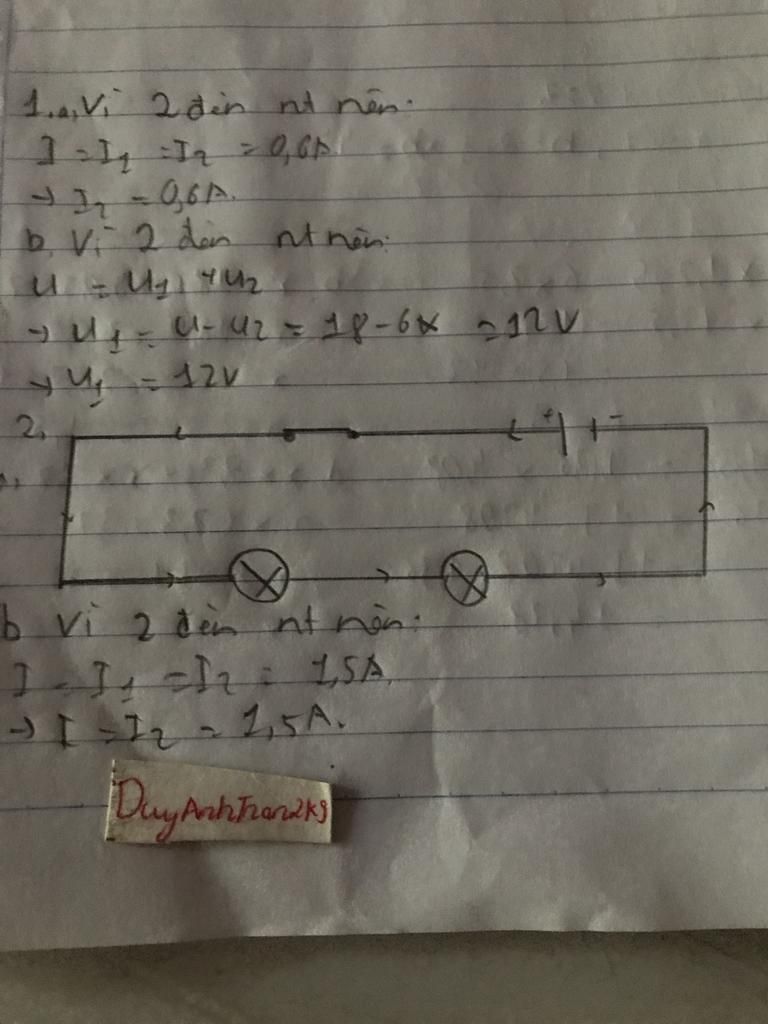 1.a, Vì 2 đèn nt nên:
I = I1 = I2 = 0,6A
→ I2 = 0,6A.
b, Vì 2 đèn nt nên:
U = U1 + U2
→ U1 = U - U2 = 18 - 6 = 12V
→ U1 = 12V
2,
+ -
b Vì 2 đèn nt nên:
I = I1 = I2 = 1,5A.
→ I = I2 = 1,5A.
DuyAnhTran2k9